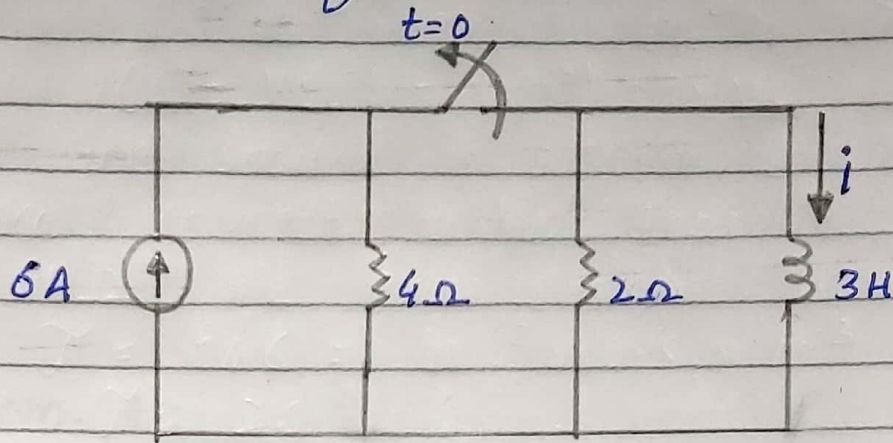 t=0
i
6A
4Ω
2Ω
3H